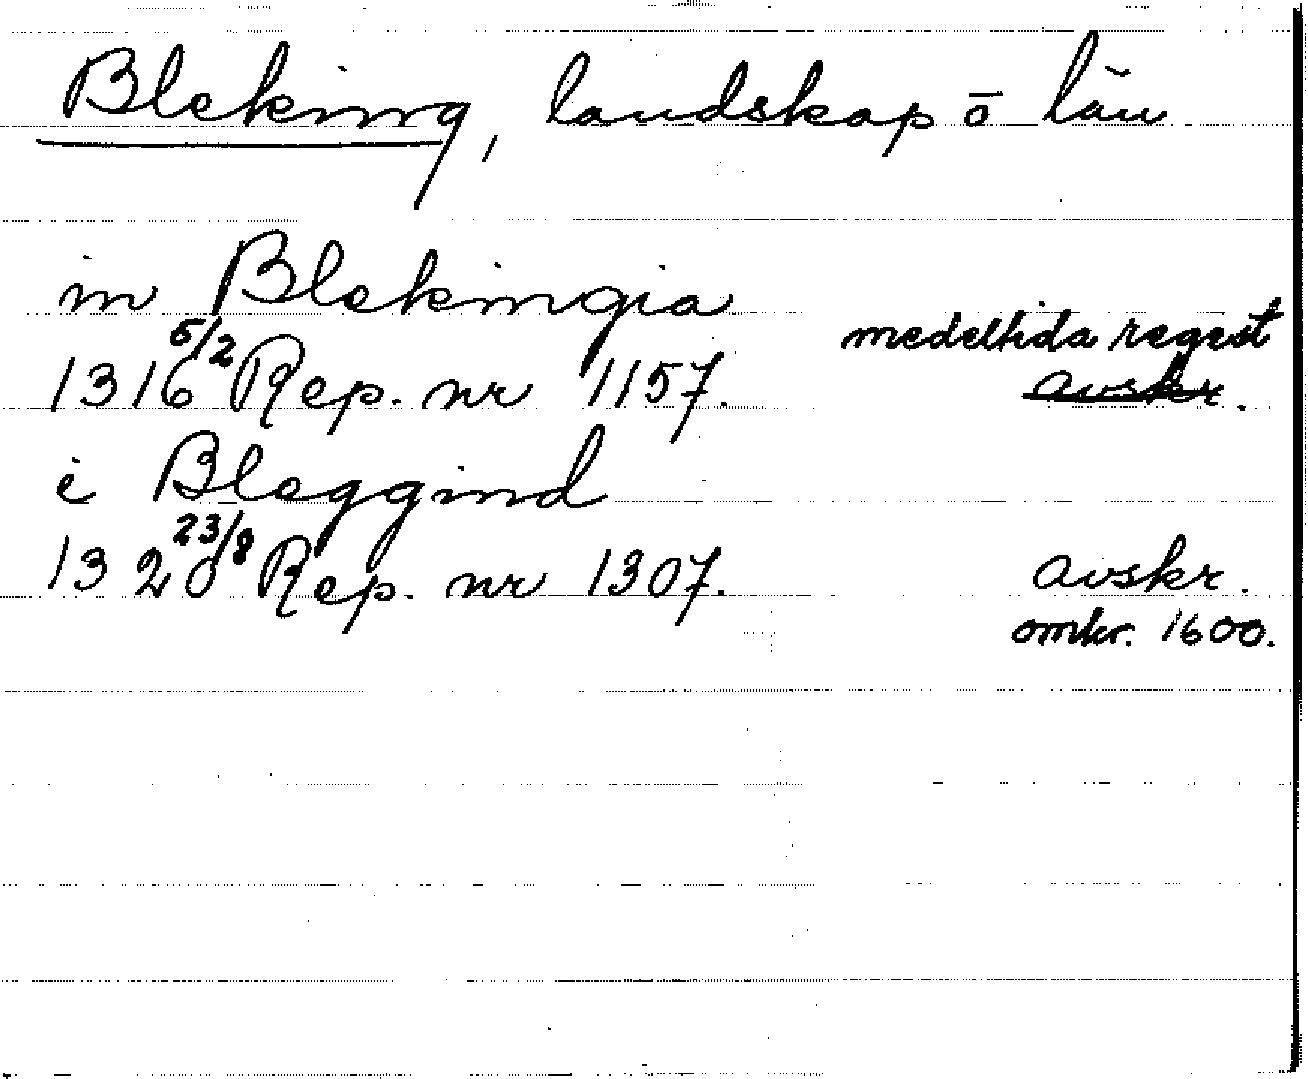 Bleking, landskap o län
in Blekingia
1316 5/2 Rep. nr 1157. medeltida regest
avskr.
i Bleggind
1320 23/8 Rep. nr 1307. avskr.
omkr. 1600.